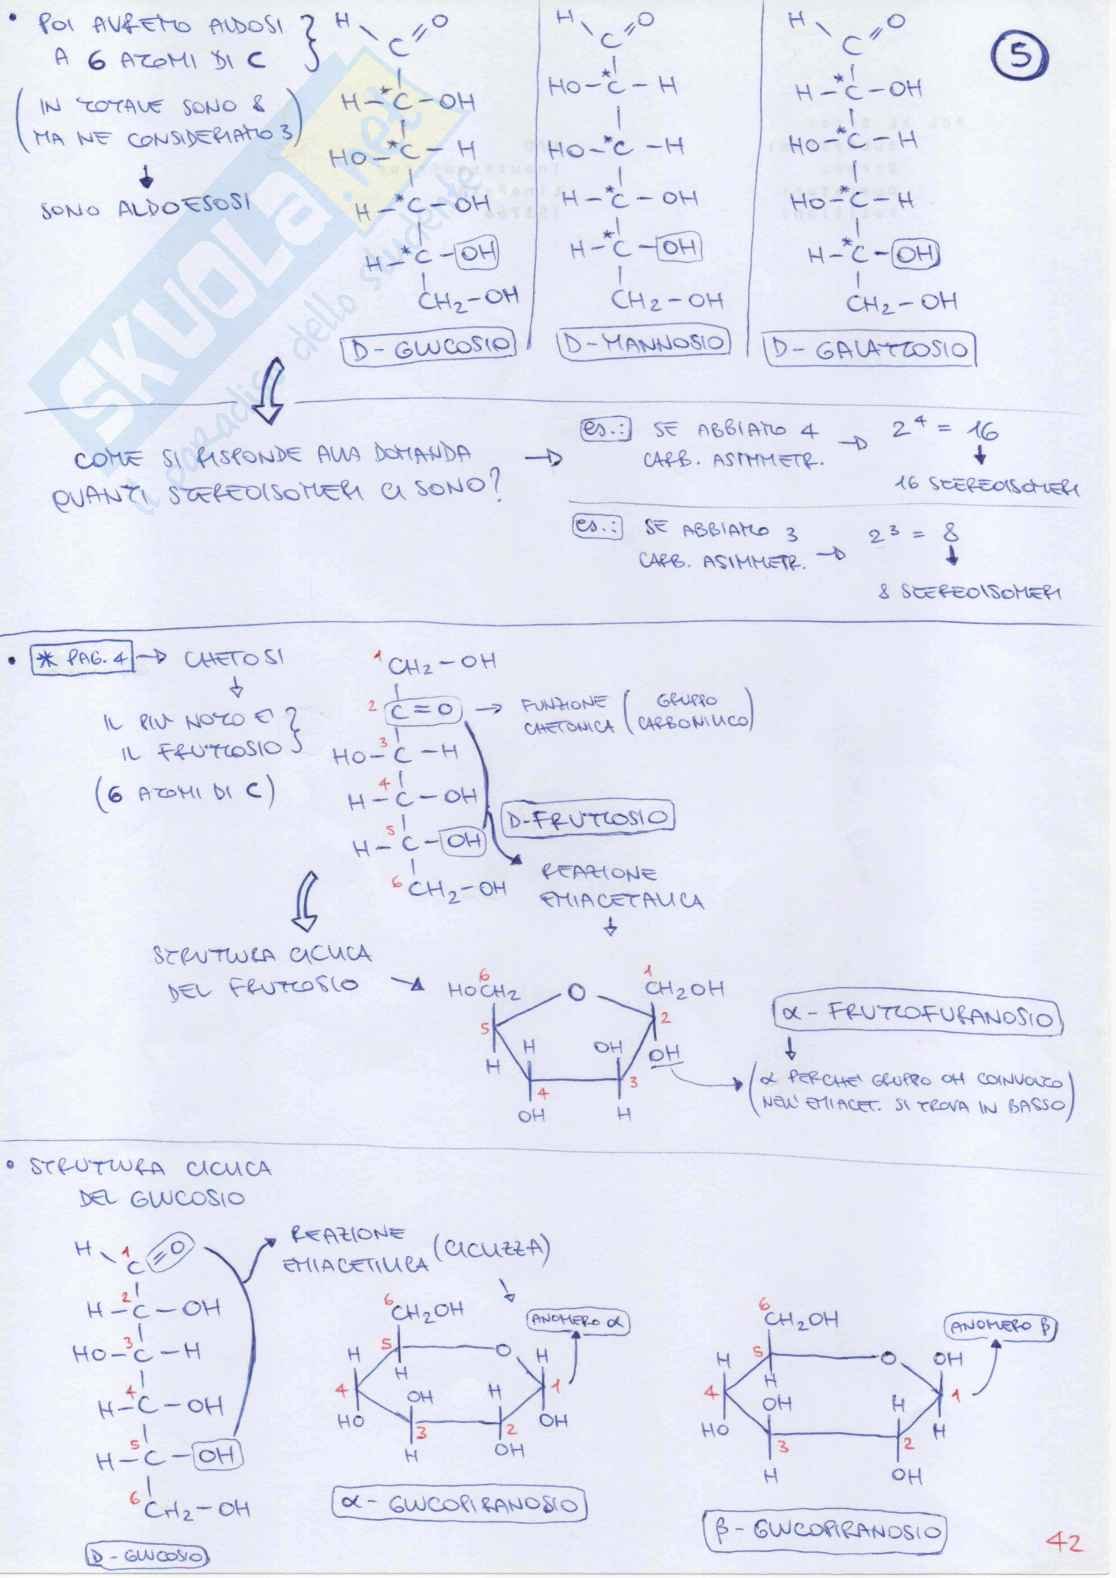 • POI AVREMO ALDOSI
A 6 ATOMI DI C
(IN TOTALE SONO 8
MA NE CONSIDERIAMO 3)
SONO ALDOESOSI
5
H C O
H-*C-OH
HO-*C-H
H-*C-OH
H-*C-OH
CH2-OH
D-GLUCOSIO
H C O
HO-*C-H
HO-*C-H
H-*C-OH
H-*C-OH
CH2-OH
D-MANNOSIO
H C O
H-*C-OH
HO-*C-H
HO-*C-H
H-*C-OH
CH2-OH
D-GALATTOSIO
SKUOLA.net
il paradiso dello studente
COME SI RISPONDE ALLA DOMANDA
QUANTI STEREOISOMERI CI SONO?
es.: SE ABBIAMO 4
CARB. ASIMMETR.
2⁴ = 16
16 STEREOISOMERI
es.: SE ABBIAMO 3
CARB. ASIMMETR.
2³ = 8
8 STEREOISOMERI
• * PAG. 4 → CHETOSI
IL PIÙ NOTO È
IL FRUTTOSIO
(6 ATOMI DI C)
1 CH2-OH
2 C=O → FUNZIONE CHETONICA (GRUPPO CARBONILICO)
HO-3C-H
H-4C-OH
H-5C-OH
6 CH2-OH
D-FRUTTOSIO
REAZIONE
EMIACETALICA
STRUTTURA CICLICA
DEL FRUTTOSIO
6 1
HOCH2 O CH2OH
5 2
H H OH OH
4 3
OH H
α-FRUTTOFURANOSIO
(α PERCHÉ GRUPPO OH COINVOLTO
NELL'EMIACET. SI TROVA IN BASSO)
• STRUTTURA CICLICA
DEL GLUCOSIO
H 1 C =O
H-2C-OH
HO-3C-H
H-4C-OH
H-5C-OH
6 CH2-OH
D-GLUCOSIO
REAZIONE
EMIACETILICA (CICLIZZA)
6
CH2OH
ANOMERO α
5 O
H H H
4 OH H 1
HO 3 2 OH
H OH
α-GLUCOPIRANOSIO
6
CH2OH
ANOMERO β
5 O OH
H H
4 OH H 1
HO 3 2 H
H OH
β-GLUCOPIRANOSIO
42